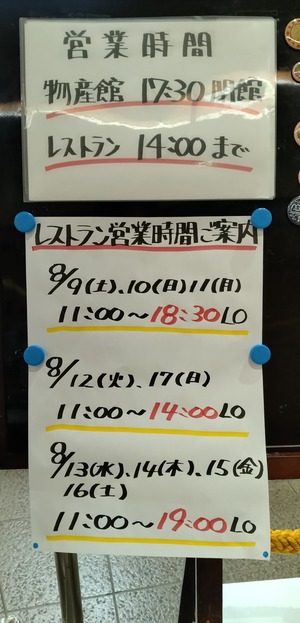 営業時間
物産館 17:30 閉館
レストラン 14:00まで
レストラン営業時間ご案内
8/9(土)、10(日)11(月)
11:00〜18:30LO
8/12(火)、17(日)
11:00〜14:00LO
8/13(水)、14(木)、15(金)
16(土)
11:00〜19:00LO